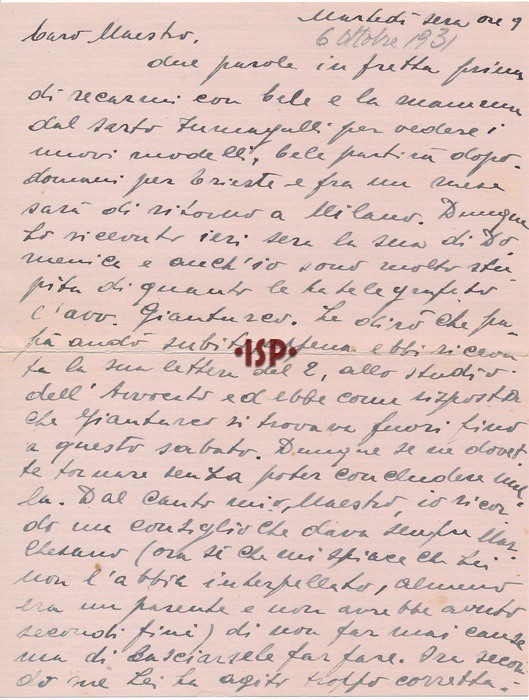 Martedì sera ore 9
6 Ottobre 1931
Caro Maestro.
due parole in fretta prima
di recarmi con Cele e la mamma
dal sarto Fumagalli per vedere i
nuovi modelli, Cele partirà dopo-
domani per Trieste e fra un mese
sarà di ritorno a Milano. Dunque
ho ricevuto ieri sera la sua di Do
menica e anch'io sono molto stu
pita di quanto le ha telegrafato
l'avv. Gianturco. Le dirò che pa-
pà andò subito appena ebbi ricevu
ta la sua lettera del 2, allo studio
dell'Avvocato ed ebbe come risposta
che Gianturco si trovava fuori fino
a questo sabato. Dunque se ne dovet
te tornare senza poter concludere nul
la. Dal canto mio, Maestro, io ricor
do un consiglio che dava sempre Mar
chesano (ora sì che mi spiace che Lei
non l'abbia interpellato, almeno
era un parente e non avrebbe avuto
secondi fini) di non far mai cause
ma di lasciarsele far fare. In secon
do me Lei ha agito troppo corretta-
ISP